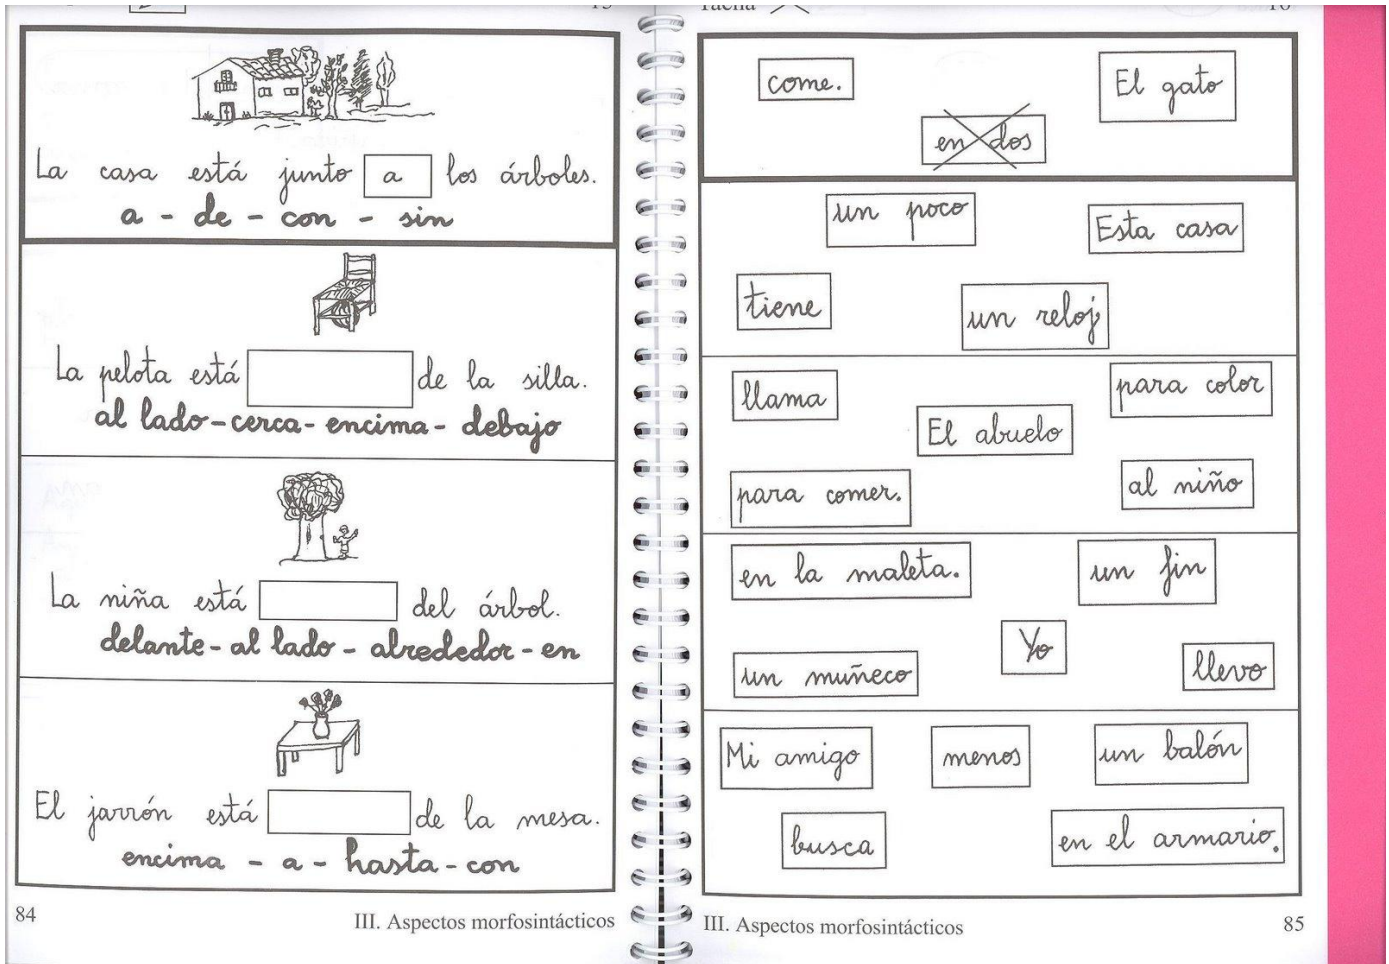 La casa está junto a los árboles.
a - de - con - sin
La pelota está de la silla.
al lado - cerca - encima - debajo
La niña está del árbol.
delante - al lado - alrededor - en
El jarrón está de la mesa.
encima - a - hasta - con
84
III. Aspectos morfosintácticos
come.
El gato
en dos
un poco
Esta casa
tiene
un reloj
llama
para color
El abuelo
para comer.
al niño
en la maleta.
un fin
Yo
un muñeco
llevo
Mi amigo
menos
un balón
busca
en el armario.
III. Aspectos morfosintácticos
85